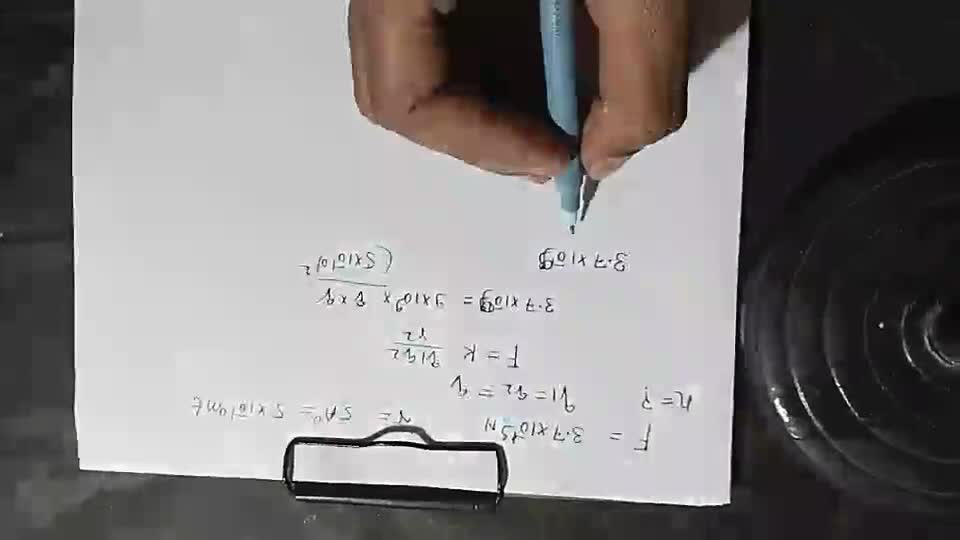 F = 3.7×10⁻⁹N r = 5A° = 5×10⁻¹⁰mt
n=? q1=q2=q
F = k q1q2/r2
3.7×10⁻⁹ = 9×10⁹× q×q/(5×10⁻¹⁰)2
3.7×10⁻⁹